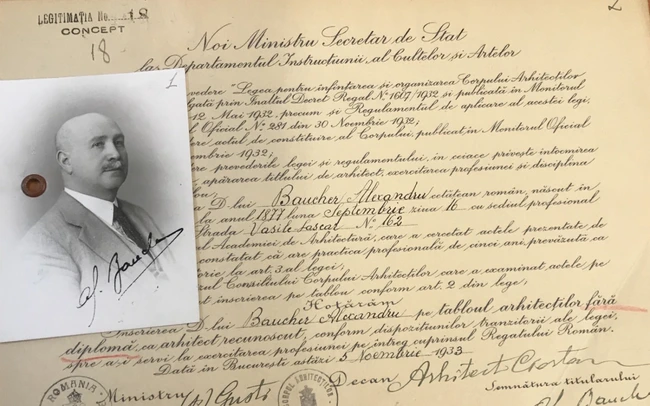 LEGITIMAȚIA No. 18
CONCEPT
18
2
1
Noi Ministru Secretar de Stat
la Departamentul Instrucțiunii, al Cultelor și Artelor
vedere "Legea pentru înființarea și organizarea Corpului Arhitecților,
gată prin Înaltul Decret Regal Nº 1607/1932 și publicată în Monitorul
12 Mai 1932, precum și Regulamentul de aplicare al acestei legi,
l Oficial Nº 281 din 30 Noembrie 1932;
ere actul de constituire al Corpului, publicat în Monitorul Oficial
embrie 1932;
re prevederile legei și regulamentului, în ceiace privește întocmirea
, apărarea titlului de arhitect, exercitarea profesiunei și disciplina
a D-lui Baucher Alexandru cetățean român, născut în
la anul 1877 luna Septembrie ziua 16 cu sediul profesional
Strada Vasile Lascar Nº 162
ul Academiei de Arhitectură, care a cercetat actele prezentate de
constatat, că are practica profesională de cinci ani, prevăzută ca
orie la art. 3 al legei
ul Consiliului Corpului Arhitecților care a examinat actele, pe
t înscrierea pe tablou conform art. 2 din lege,
Hotărâm
Înscrierea D-lui Baucher Alexandru pe tabloul arhitecților fără
diplomă, ca arhitect recunoscut, conform dispozițiunilor tranzitorii ale legei,
spre a-i servi la exercitarea profesiunei pe întreg cuprinsul Regatului Român.
Dată în București astăzi 5 Noembrie 1933
Ministru Gusti
Decan Arhitect
Semnătura titularului
Al. Bauch
ROMANIA
CORPUL ARHITECȚILOR